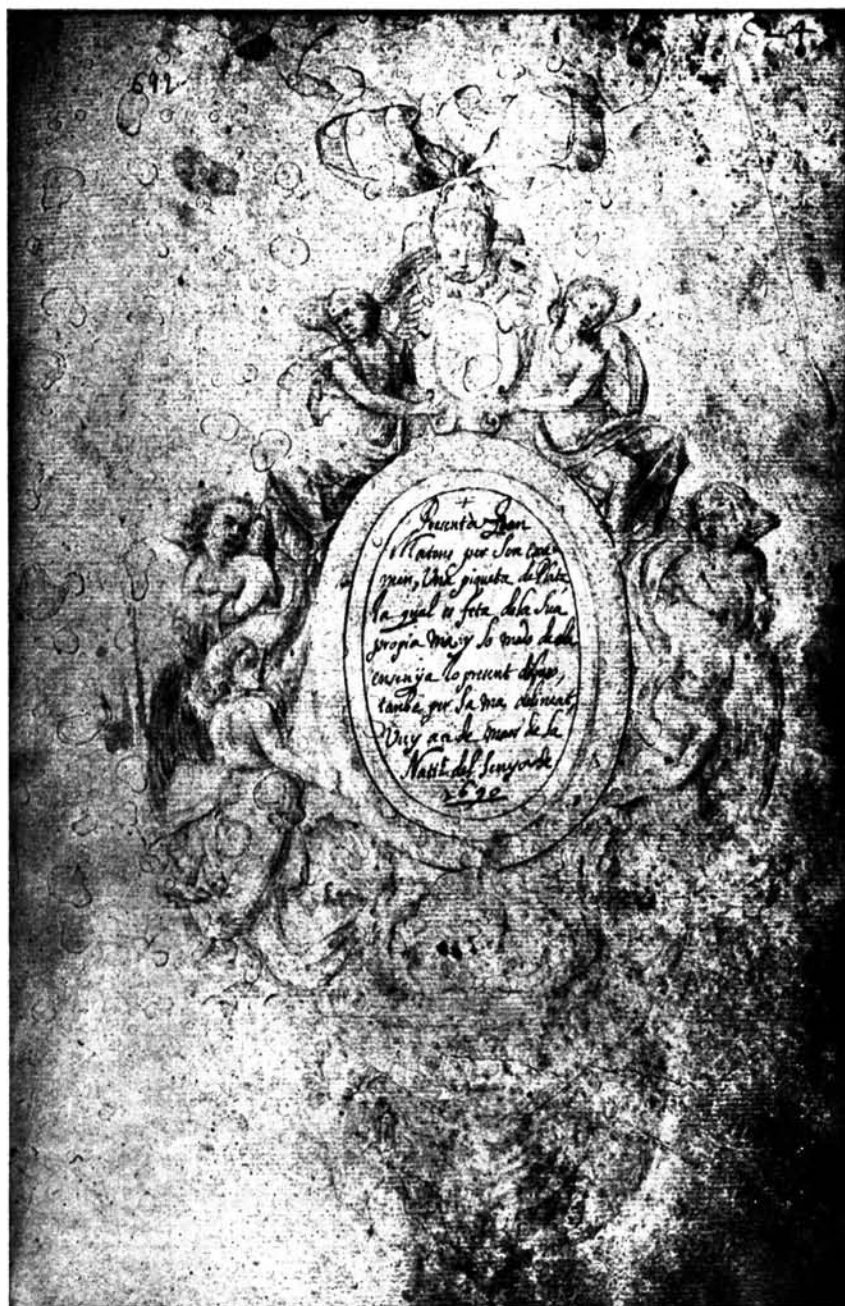 692
+
Presenta Joan
Mateus per son exa-
men, Una piqueta de Plata
la qual es feta de la sua
propia ma, y lo modo de ella
ensenya lo present dibuix,
tambe per sa ma delineat,
Vuy als de mars de la
Natt.t del Senyor de
1690